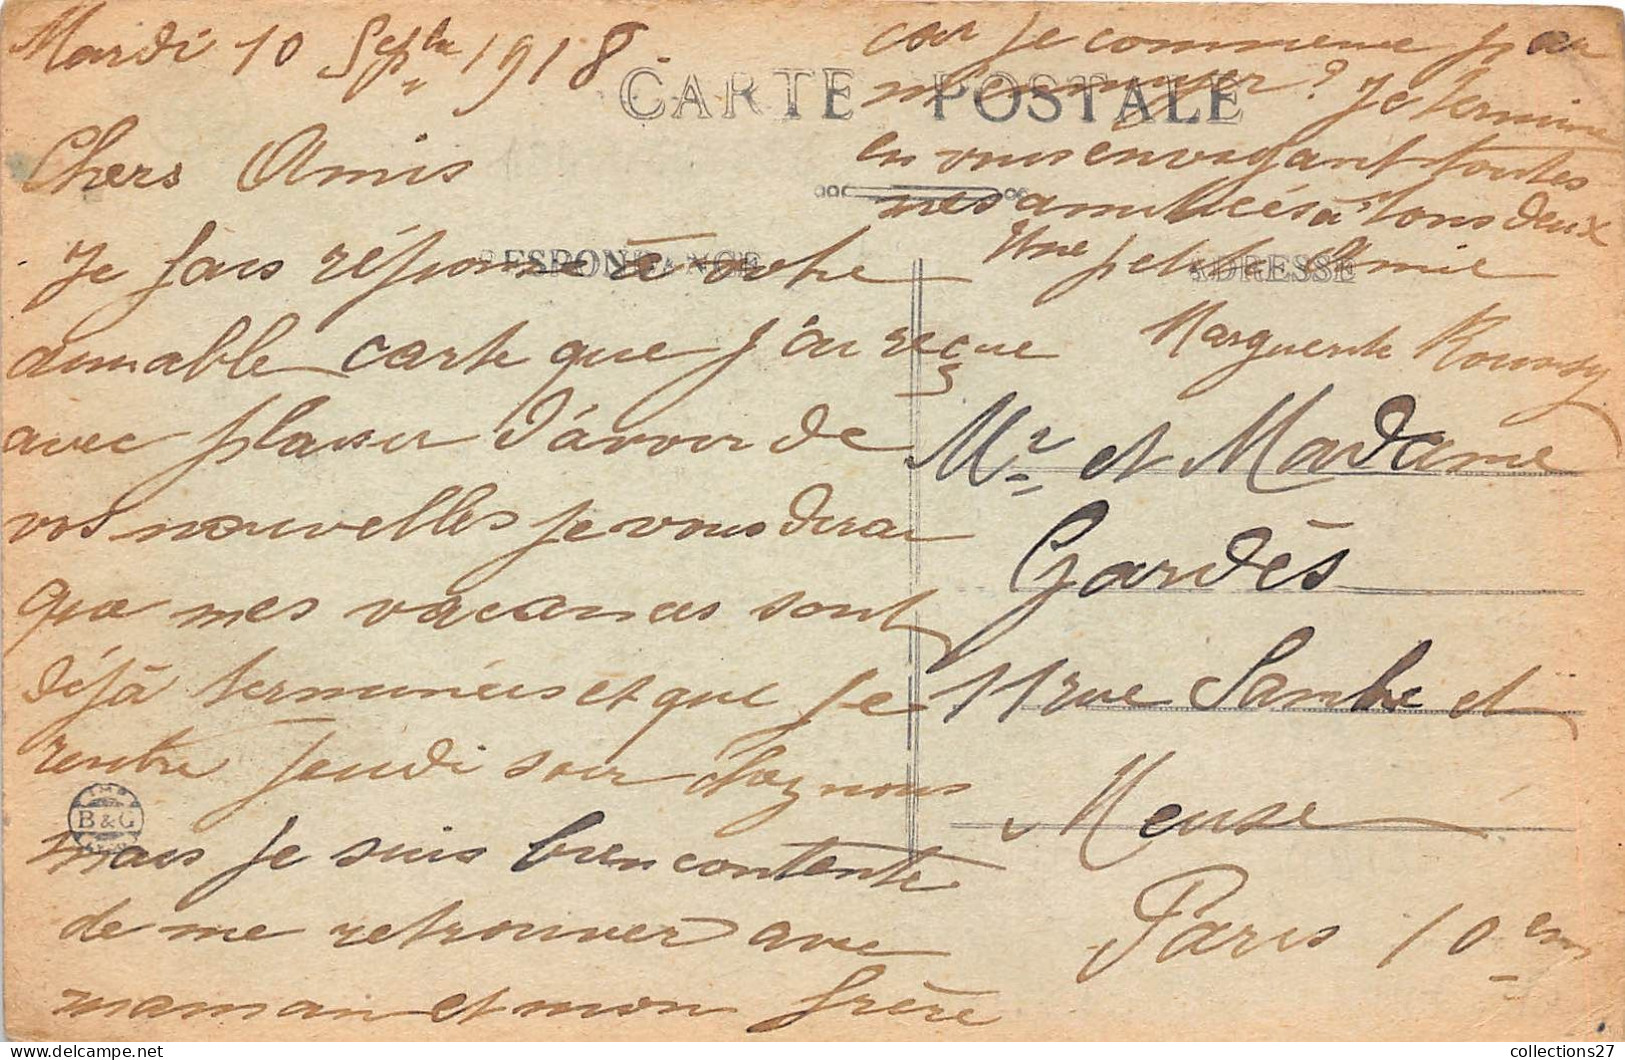 Mardi 10 Septbre 1918.
Chers Amis
Je fais réponse à votre
aimable carte que j'ai reçue
avec plaisir d'avoir de
vos nouvelles je vous dirai
que mes vacances sont
déjà terminées et que je
rentre jeudi soir chez nous
mais je suis bien contente
de me retrouver avec
maman et mon frère
car je commence par
m'ennuyer? Je termine
en vous envoyant toutes
mes amitiées à tous deux
Une petite Amie
Marguerite
CARTE POSTALE
CORRESPONDANCE
ADRESSE
Mr et Madame
Gardès
11 rue Sambre et
Meuse
Paris 10em
IMP
B & G
collections27